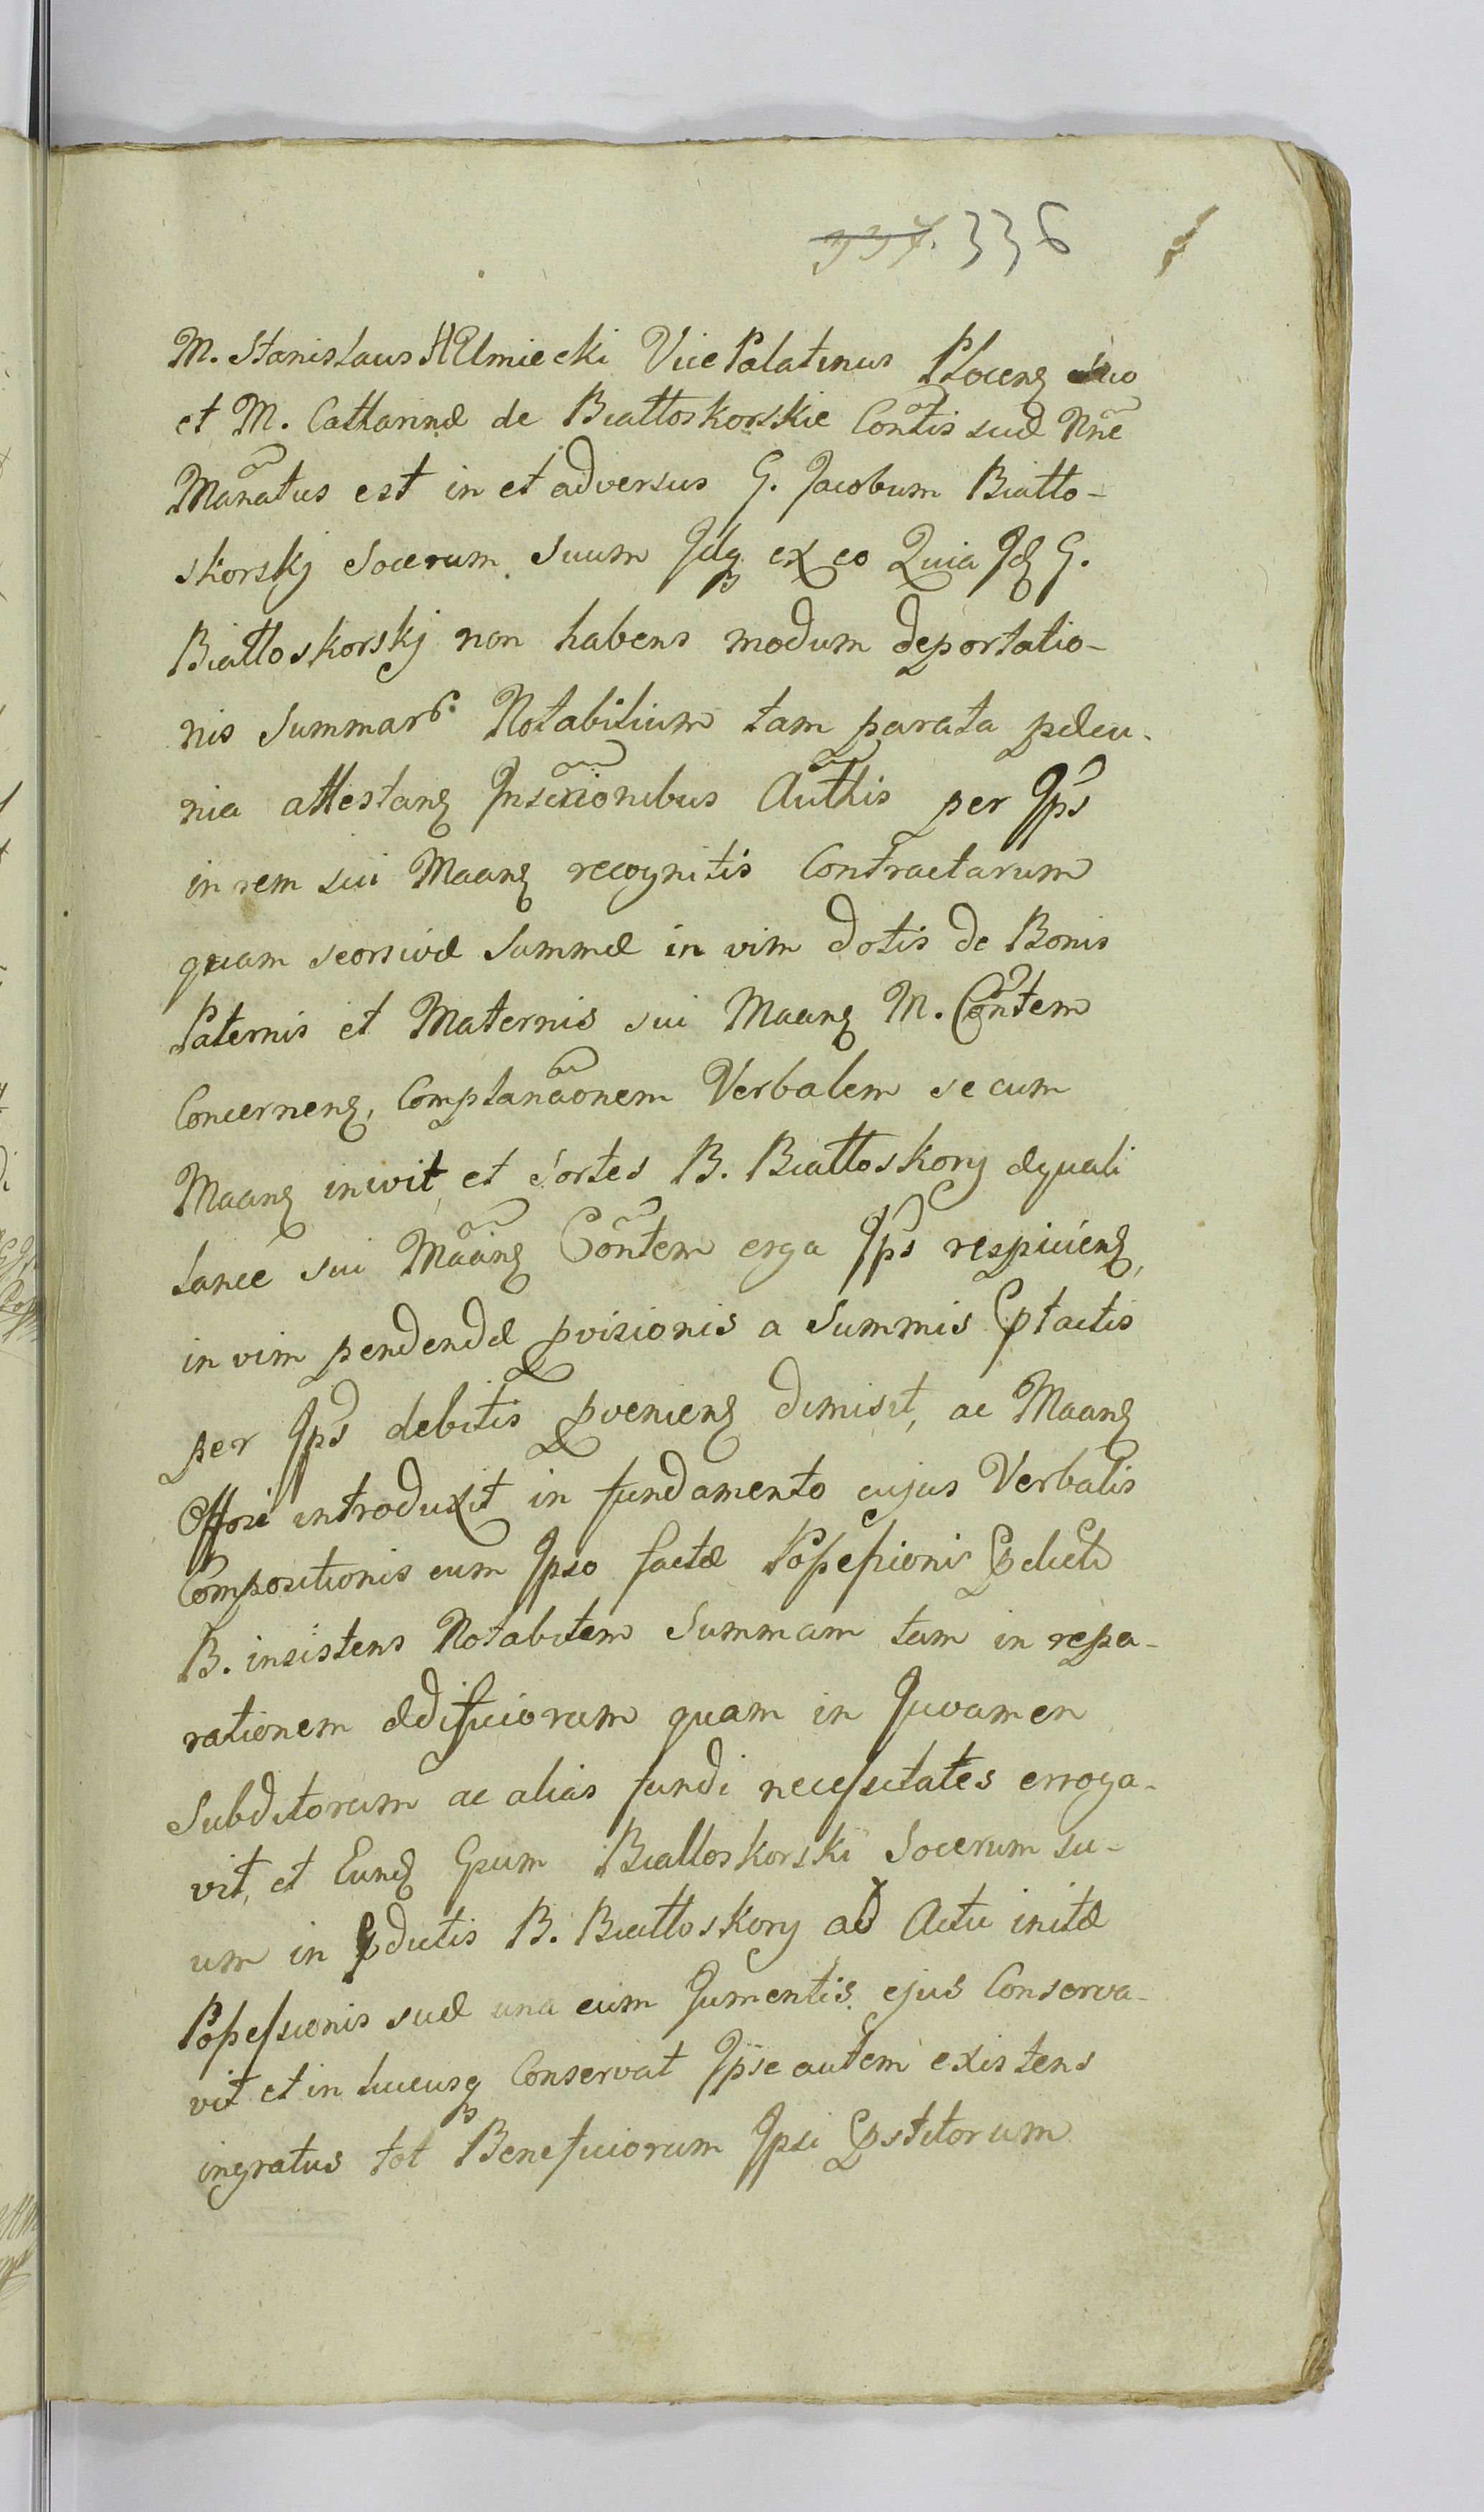 337. 336
M. Stanislaus Elmiecki Vice Palatinus Plocens suo
et M. Catharinæ de Białłoskorskie Contis suæ Nne
Manatus est in et adversus G. Jacobum Białło-
skorskj Socerum Suum Idq ex eo Quia Id G.
Białłoskorskj non habens modum deportatio-
nis Summar. Notabilium tam parata pecu-
nia attestans Inscrionibus Authis per Ips
in rem sui Maans recognitis Contractarum
quam seorsivæ Summæ in vim dotis de Bonis
Paternis et Maternis sui Maans M. Contem
Concernens, Complanaonem Verbalem secum
Maans inivit et Sortes B. Białłoskory æquali
lance sui Maans Contem erga Ips respiciens,
in vim pendendæ pvisionis a Summis Ptactis
per Ips debitis pveniens dimisit, ac Maans
Offose introduxit in fundamento cujus Verbalis
Compositionis cum Ipso factæ Possessioni Pdict
B. insistens Notabilem Summam tam in repa-
rationem ædificiorum quam in Juvamen
Subditorum ac alias fundi necessitates erroga-
vit, et Eund Gsum Białłoskorski Socerum su-
um in Pdictis B. Białłoskory ad Actu initæ
Possessionis suæ una cum Jumentis ejus Conserva-
vit et in hucusq Conservat Ipse autem existens
ingratus tot Beneficiorum Ipsi Pstitorum